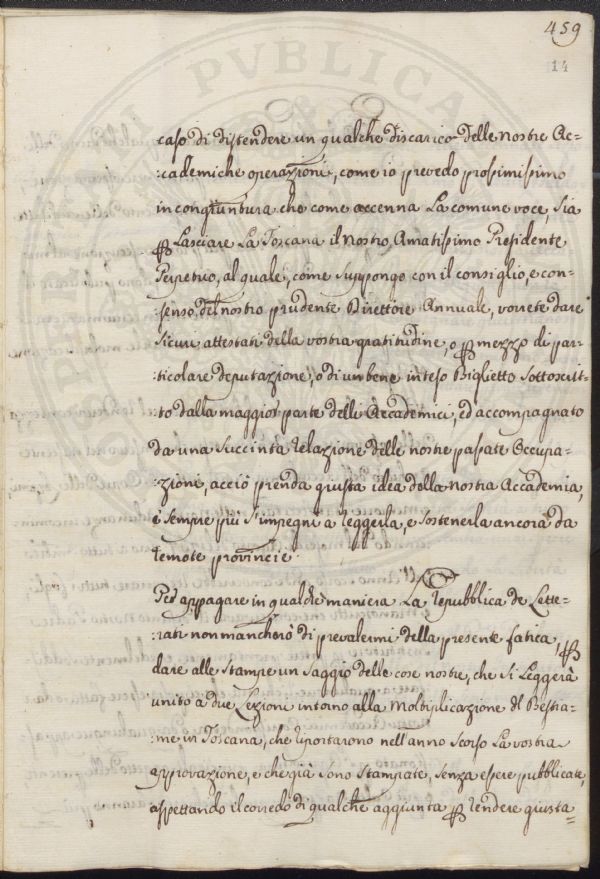 459
14
caso di distendere un qualche discarico delle nostre Ac=
:cademiche operazioni, come io prevedo prossimissimo
in congiuntura che come accenna La comune voce, Sia
ꝑ Lasciare La Toscana il Nostro Amatissimo Presidente
Perpetuo, al quale, come Suppongo con il consiglio, e con=
:senso del nostro prudente Direttore Annuale, vorrete dare
Sicuri attestati della vostra gratitudine, o ꝑ mezzo di par=
:ticolare deputazione, o di un bene inteso Biglietto Sottoscrit=
:to dalla maggior parte delli Accademici, ed accompagnato
da una Succinta relazione delle nostre passate Occupa=
:zioni, acciò prenda giusta idea della nostra Accademia,
e Sempre più S'impegni a reggerla, e Sostenerla ancora da
remote provincie.
Per appagare in qualche maniera La Repubblica de Lette=
:rati non mancherò di prevalermi della presente fatica, ꝑ
dare alle Stampe un Saggio delle cose nostre, che Si Leggerà
unito a due Lezioni intorno alla Moltiplicazione del Bestia=
:me in Toscana, che riportarono nell'anno Scorso La vostra
approvazione, e che già Sono Stampate, Senza essere pubblicate,
aspettando il corredo di qualche aggiunta ꝑ rendere giusta=